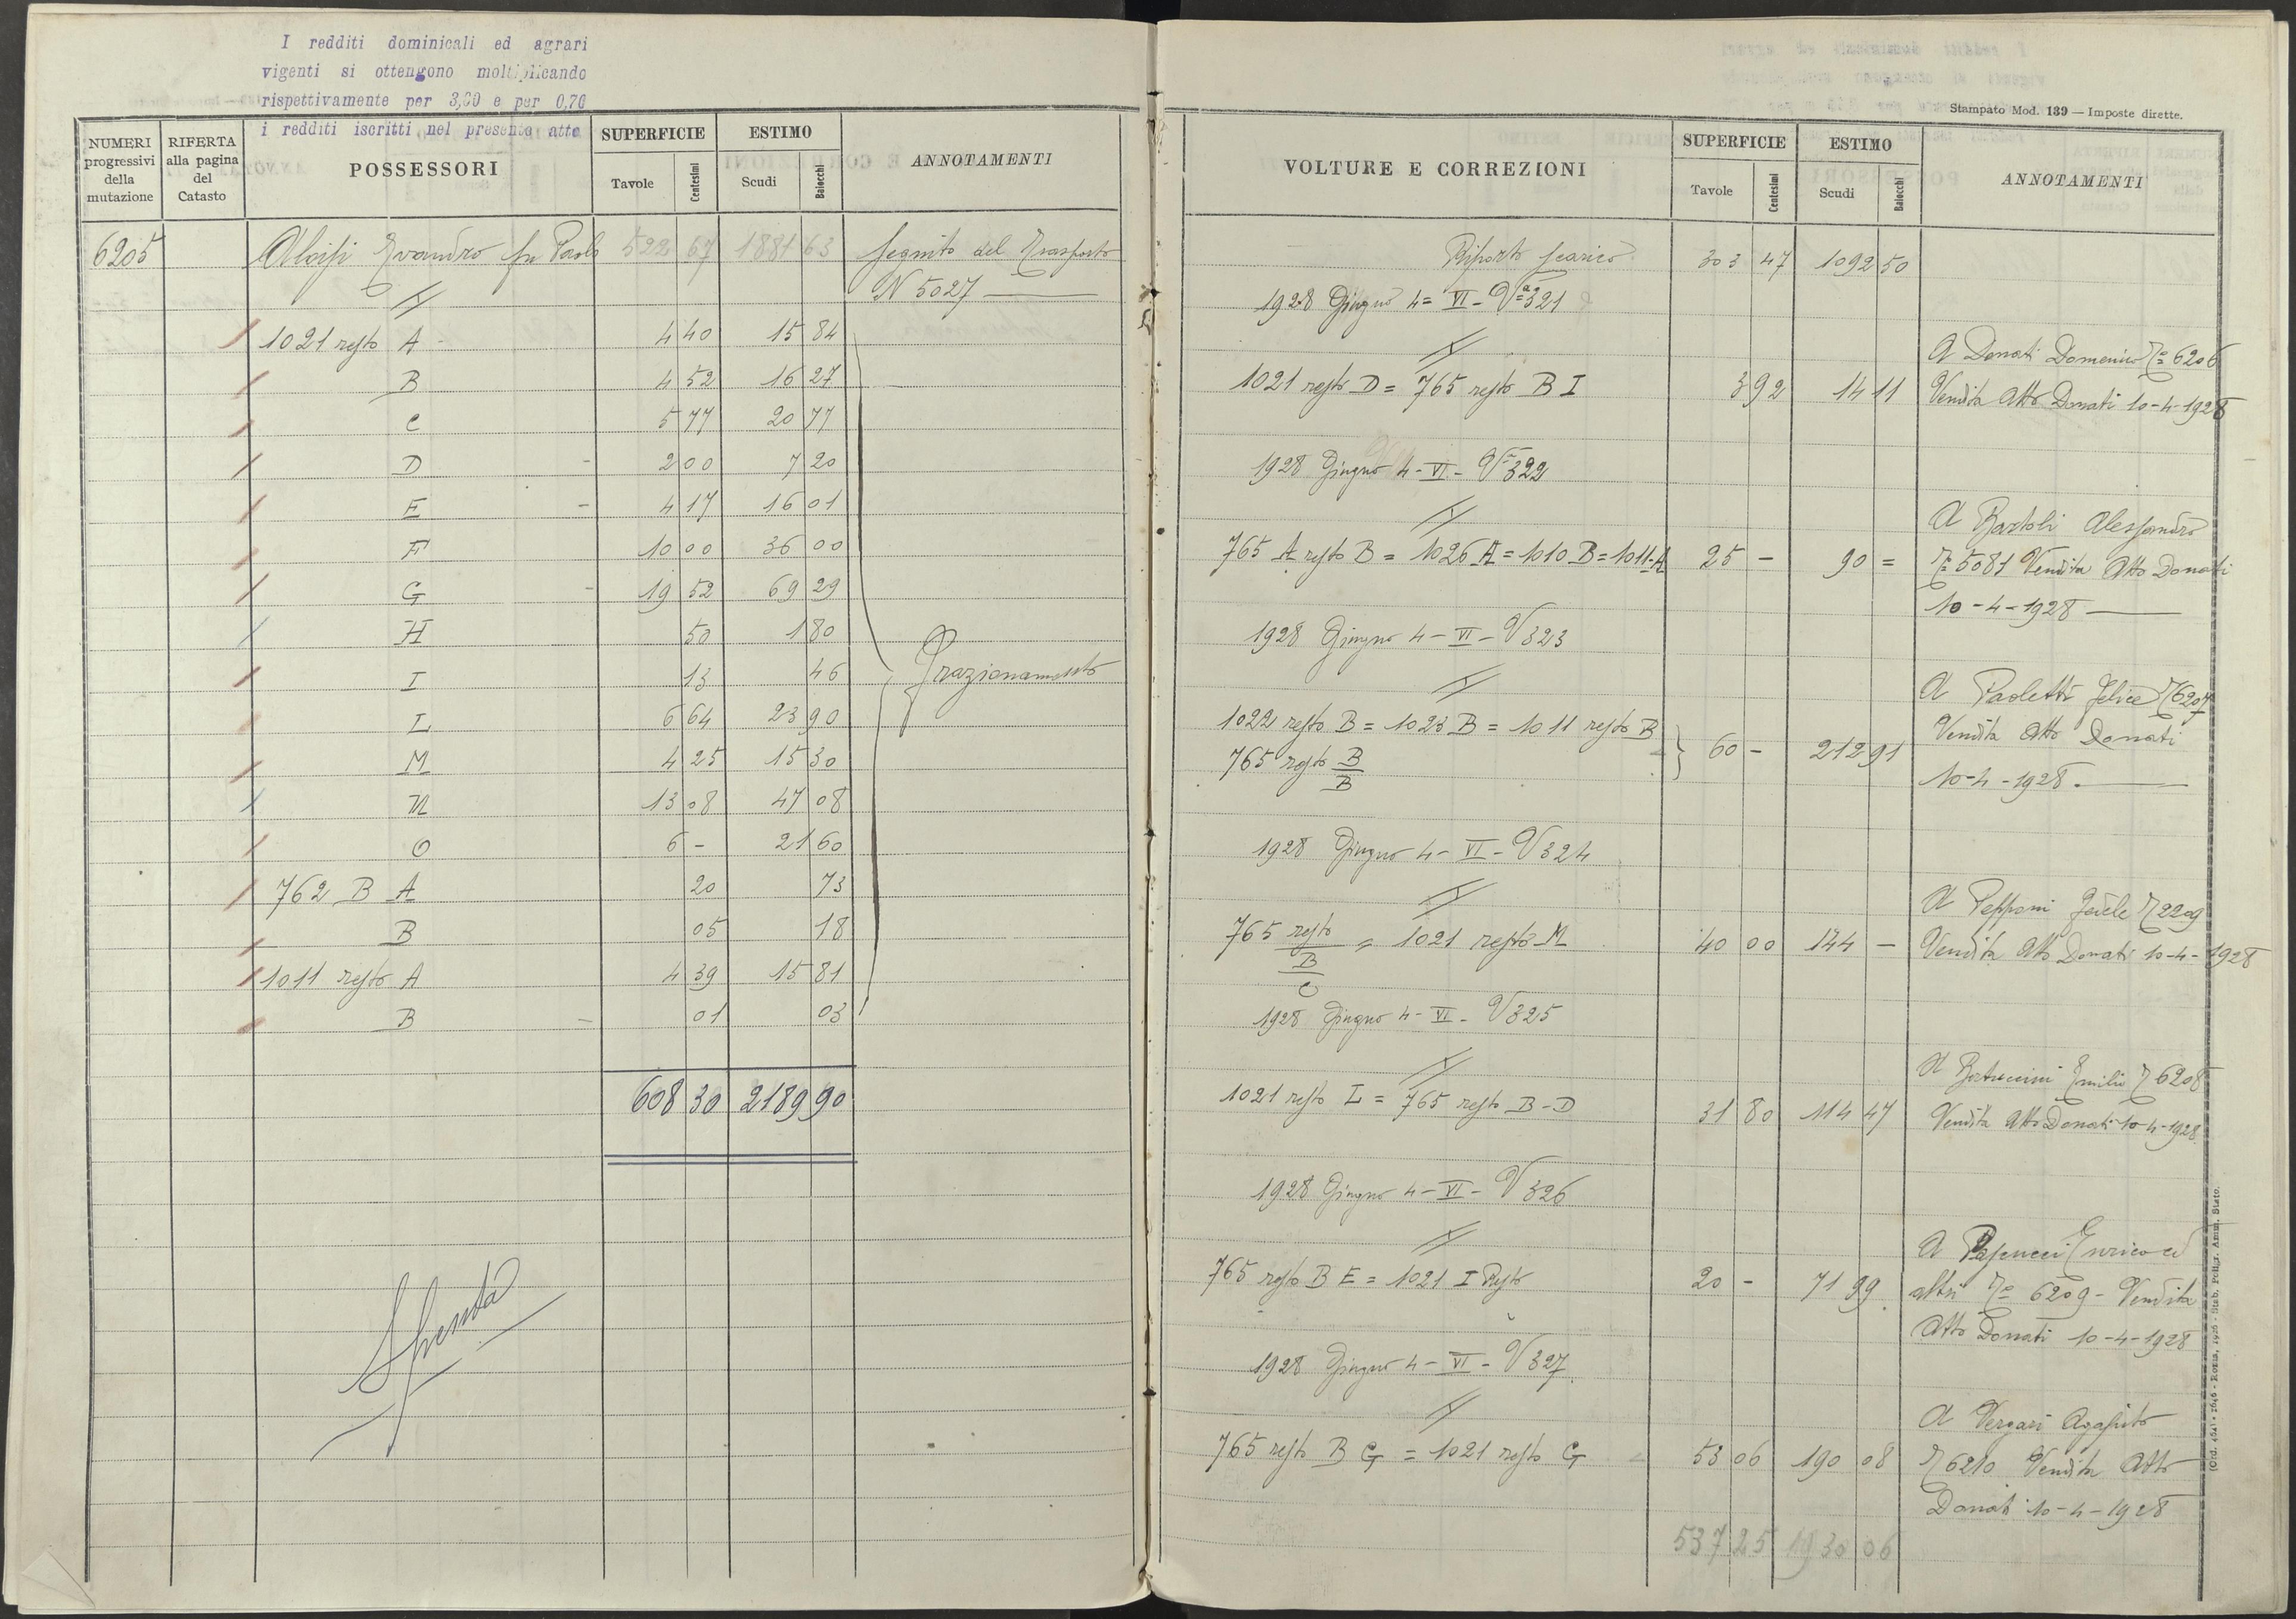 I redditi dominicali ed agrari
vigenti si ottengono moltiplicando
rispettivamente per 3,00 e per 0,70
i redditi iscritti nel presente atto
NUMERI progressivi della mutazione | RIFERTA alla pagina del Catasto | POSSESSORI | SUPERFICIE Tavole Centesimi | ESTIMO Scudi Baiocchi | ANNOTAMENTI
6205 Aloisi Evandro fu Paolo 522 67 1881 63 Seguito del Trasporto
N 5027
1021 resto A 4 40 15 84
B 4 52 16 27
C 5 77 20 77
D 2 00 7 20
E 4 17 16 01
F 10 00 36 00
G 19 52 69 29
H 50 1 80
I 13 46 Frazionamento
L 6 64 23 90
M 4 25 15 30
N 13 08 47 08
O 6 - 21 60
762 B A 20 73
B 05 18
1011 resto A 4 39 15 81
B 01 03
608 30 2189 90
Spenta
Stampato Mod. 139 — Imposte dirette.
VOLTURE E CORREZIONI | SUPERFICIE Tavole Centesimi | ESTIMO Scudi Baiocchi | ANNOTAMENTI
Riporto scarico 303 47 1092 50
1928 Giugno 4 = VI - V 321
A Donati Domenico T= 6206
1021 resto D = 765 resto B I 3 92 14 11 Vendita Atto Donati 10-4-1928
1928 Giugno 4 - VI - V 322
A Bartoli Alessandro
765 A resto B = 1026 A = 1010 B = 1011-A 25 - 90 = T= 5081 Vendita Atto Donati
10-4-1928
1928 Giugno 4 - VI - V 323
A Paoletti Felice T 6207
1022 resto B = 1023 B = 1011 resto B Vendita Atto Donati
765 resto B/B 60 - 212 91
10-4-1928
1928 Giugno 4 - VI - V 324
A Pepponi T 2209
765 resto/B/C = 1021 resto M 40 00 144 - Vendita Atto Donati 10-4-1928
1928 Giugno 4 - VI - V 325
A Emilio T 6208
1021 resto L = 765 resto B-D 31 80 114 47 Vendita Atto Donati 10-4-1928
1928 Giugno 4 - VI - V 326
A Enrico ed
765 resto B E = 1021 I Resto 20 - 71 99 altri T= 6209 - Vendita
Atto Donati 10-4-1928
1928 Giugno 4 - VI - V 327
A Vergari Agapito
765 resto B G = 1021 resto G 53 06 190 08 T 6210 Vendita Atto
Donati 10-4-1928
537 25 1930 06